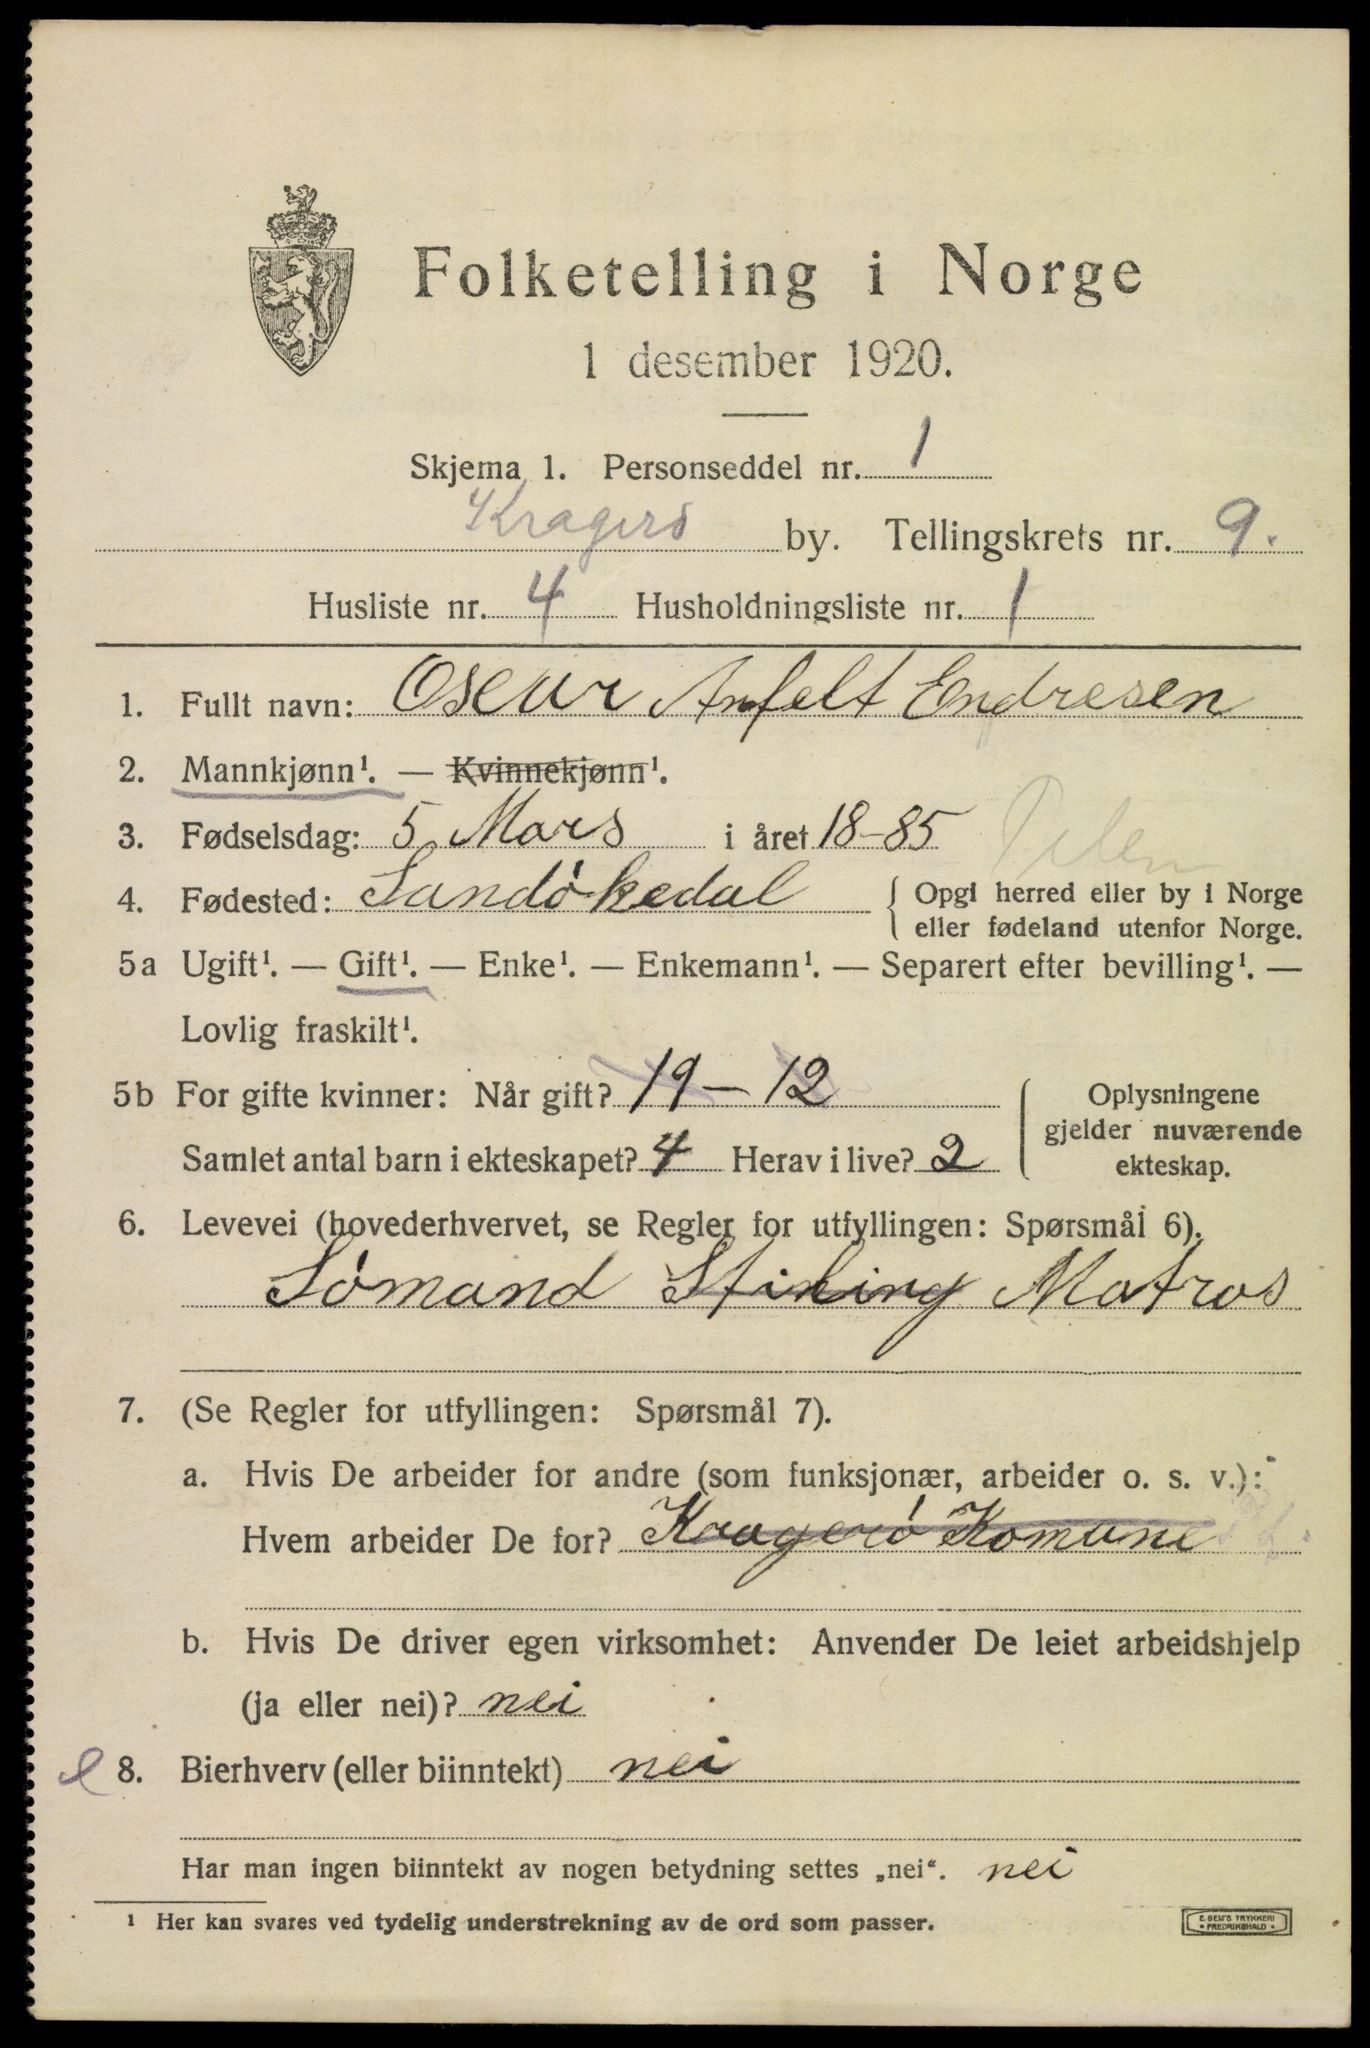 Folketelling i Norge
1 desember 1920.
Skjema 1. Personseddel nr. 1
Kragerö by. Tellingskrets nr. 9.
Husliste nr. 4 Husholdningsliste nr. 1
1. Fullt navn: Oscar Anfelt Endresen
2. Mannkjønn¹. — Kvinnekjønn¹.
3. Fødselsdag: 5 Mars i året 18-85
4. Fødested: Sandökedal { Opgi herred eller by i Norge
eller fødeland utenfor Norge.
5a Ugift¹. — Gift¹. — Enke¹. — Enkemann¹. — Separert efter bevilling¹. —
Lovlig fraskilt¹.
5b For gifte kvinner: Når gift? 19-12
Samlet antal barn i ekteskapet? 4 Herav i live? 2
Oplysningene
gjelder nuværende
ekteskap.
6. Levevei (hovederhvervet, se Regler for utfyllingen: Spørsmål 6).
Sömand Matros
7. (Se Regler for utfyllingen: Spørsmål 7).
a. Hvis De arbeider for andre (som funksjonær, arbeider o. s. v.):
Hvem arbeider De for? Kragerö Komune
b. Hvis De driver egen virksomhet: Anvender De leiet arbeidshjelp
(ja eller nei)? nei
8. Bierhverv (eller biinntekt) nei
Har man ingen biinntekt av nogen betydning settes „nei“. nei
¹ Her kan svares ved tydelig understrekning av de ord som passer.
E. SEM'S TRYKKERI
FREDRIKSHALD